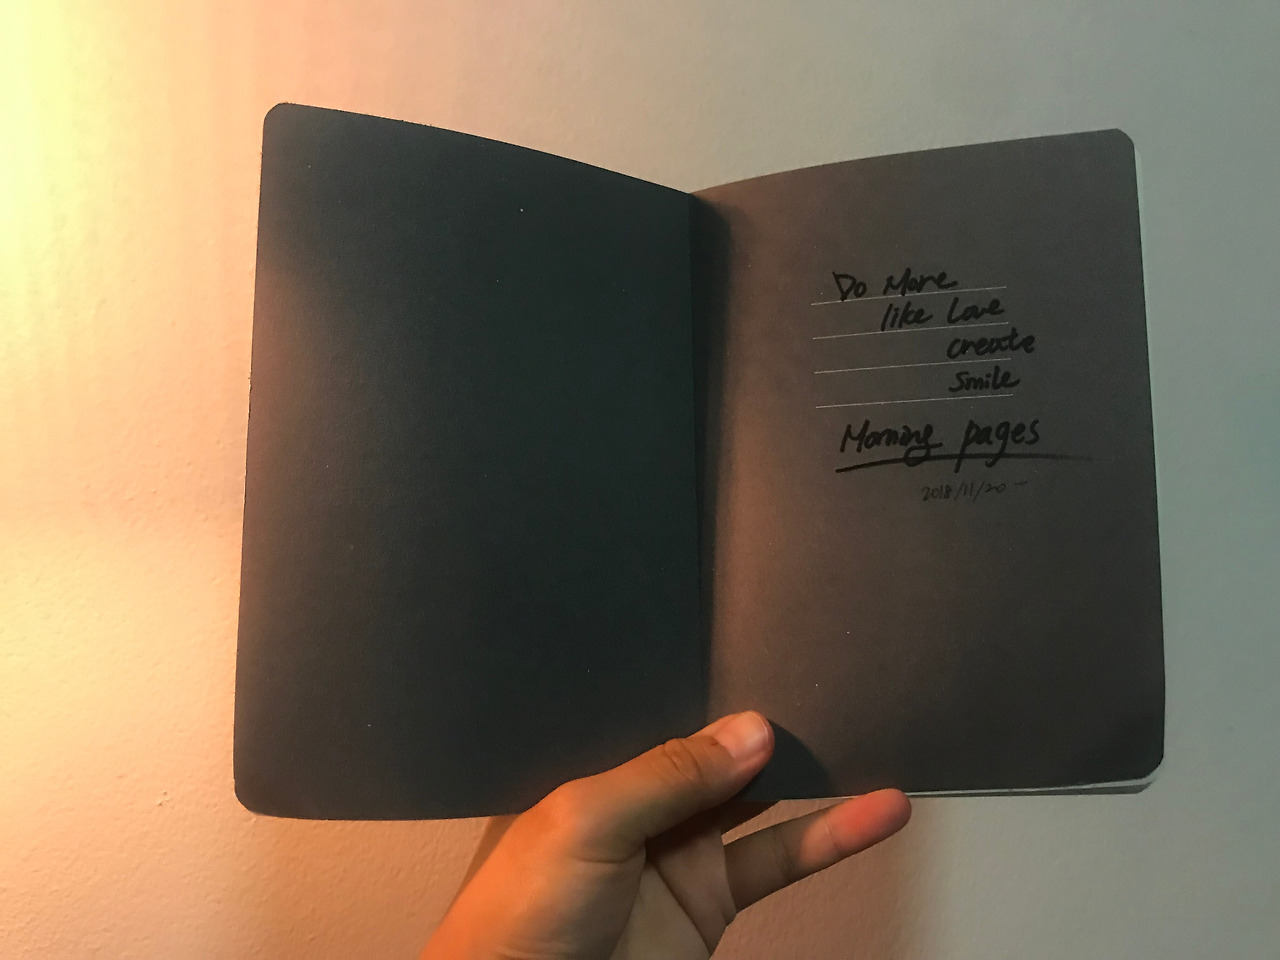 Do More
like Love
create
smile
Morning pages
2018/11/20 -